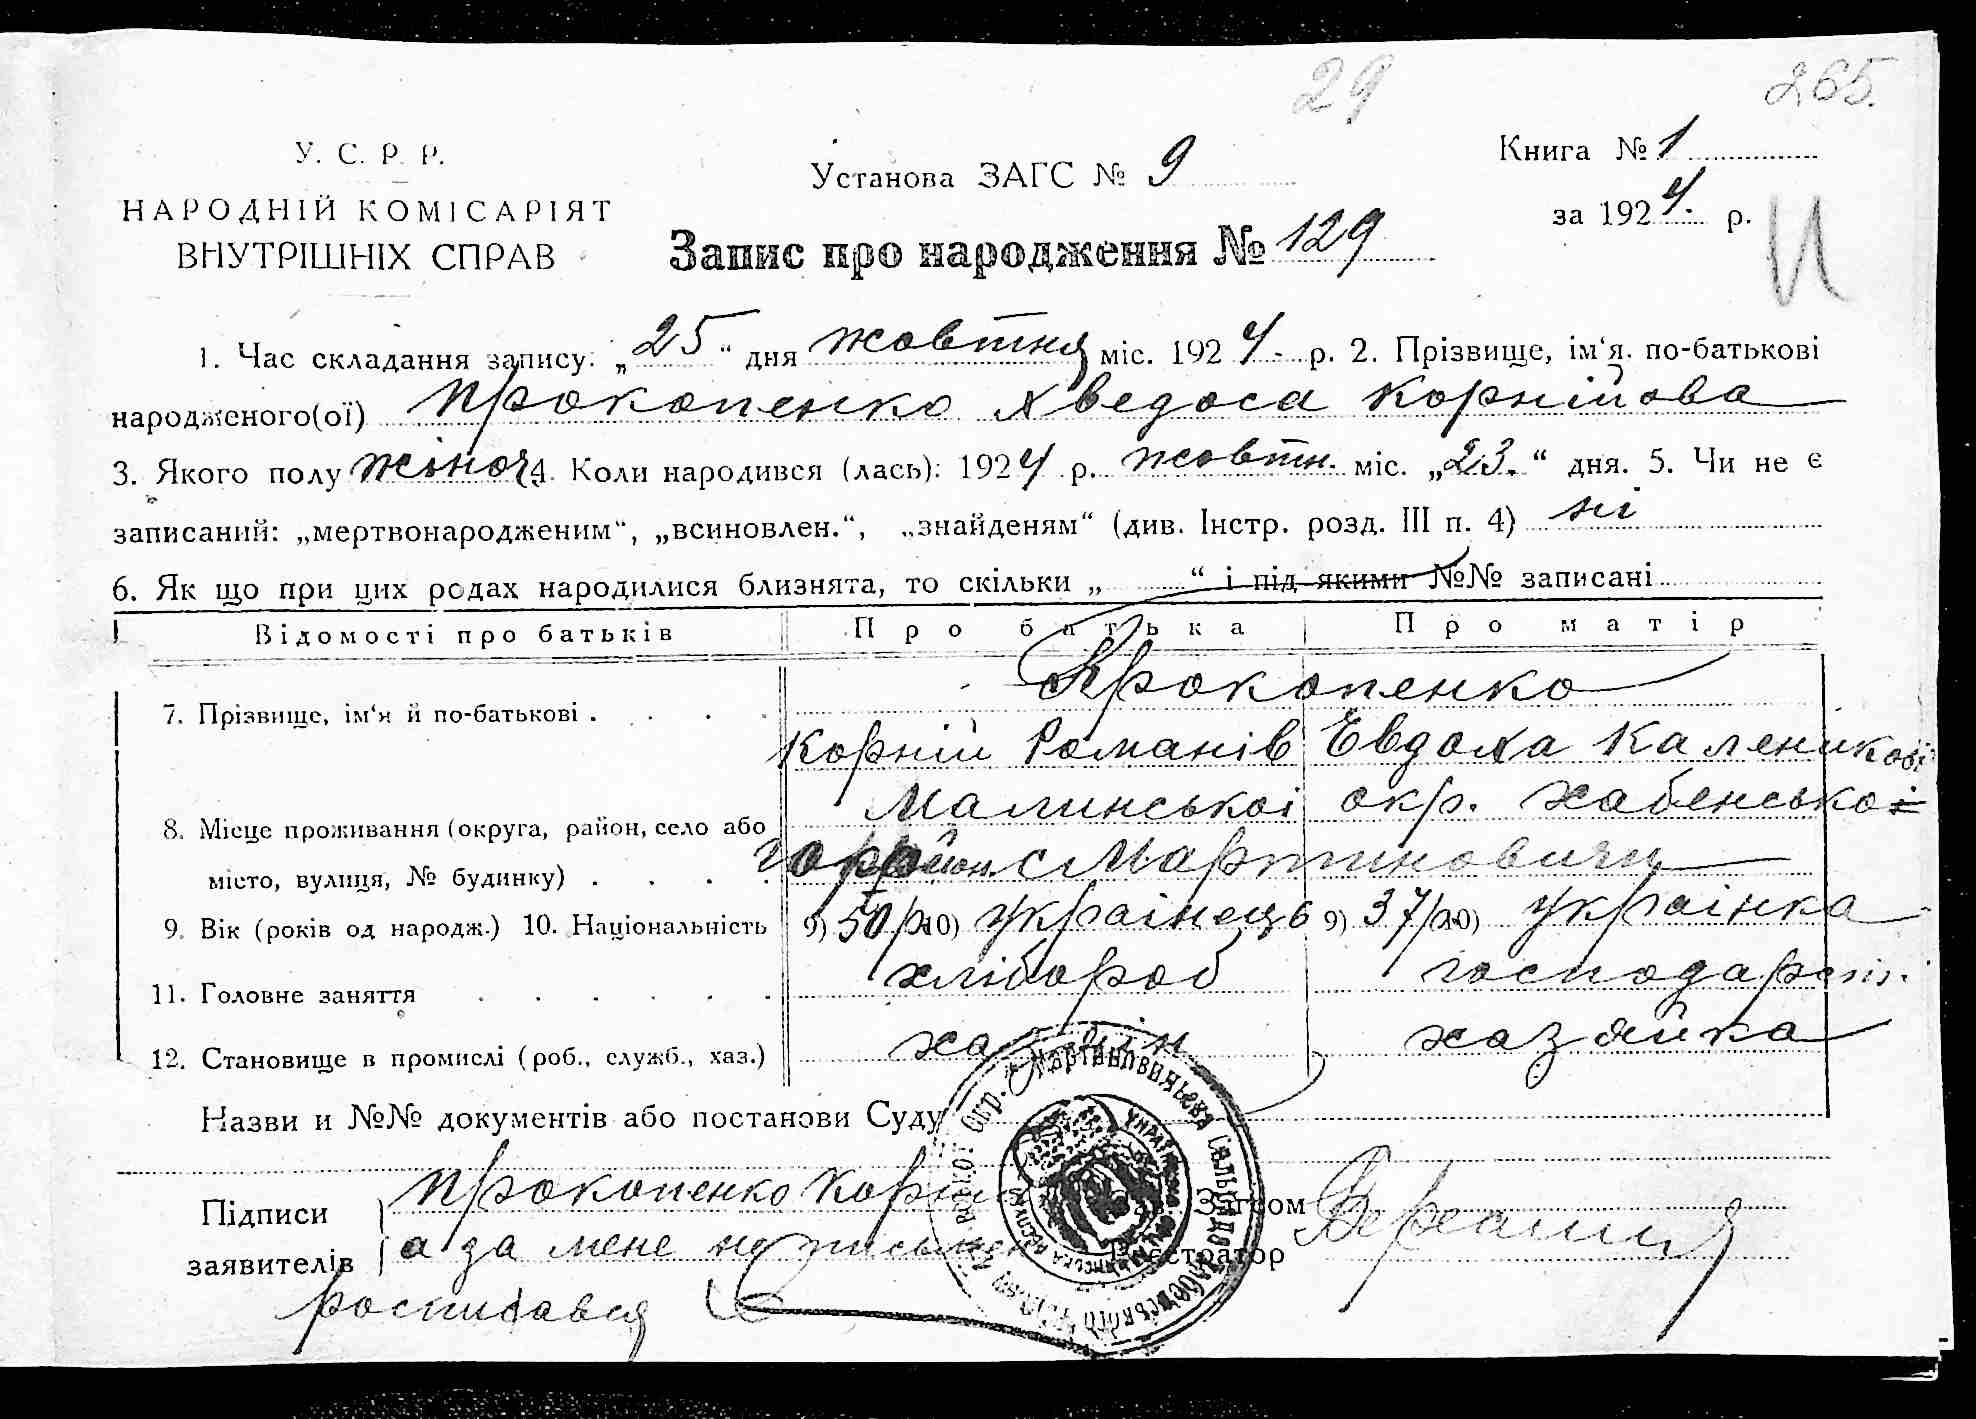 29
265.
У. С. Р. Р.
НАРОДНІЙ КОМІСАРІЯТ
ВНУТРІШНІХ СПРАВ
Установа ЗАГС № 9
Книга № 1
за 1924. р.
Запис про народження № 129
И
1. Час складання запису: „25“ дня жовтня міс. 1924. р. 2. Прізвище, ім‘я. по-батькові
народженого(ої) Прокопенко Хведоса Корнійова
3. Якого полу жіноч. 4. Коли народився (лась): 1924 р. жовтн. міс. „23.“ дня. 5. Чи не є
записаний: „мертвонародженим“, „всиновлен.“, „знайденям“ (див. Інстр. розд. III п. 4) ні
6. Як що при цих родах народилися близнята, то скільки „ “ і під якими №№ записані
Відомості про батьків Про батька Про матір
7. Прізвище, ім‘я й по-батькові . . . . Прокопенко
Корній Романів Евдоха Каленикові
8. Місце проживання (округа, район, село або Малинської окр. Хабенської
місто, вулиця, № будинку) . . . . район. с Мартиновичи
9. Вік (років од народж.) 10. Національність 9) 50 р. 10) українець 9) 37 р. 10) українка
11. Головне заняття . . . . . . хлібороб господарст.
12. Становище в промислі (роб., служб., хаз.) хазяїн хазяйка
Назви и №№ документів або постанови Суду
Підписи Прокопенко Корній Зав. Загсом
заявителів а за мене не письмен Реєстратор
росписався